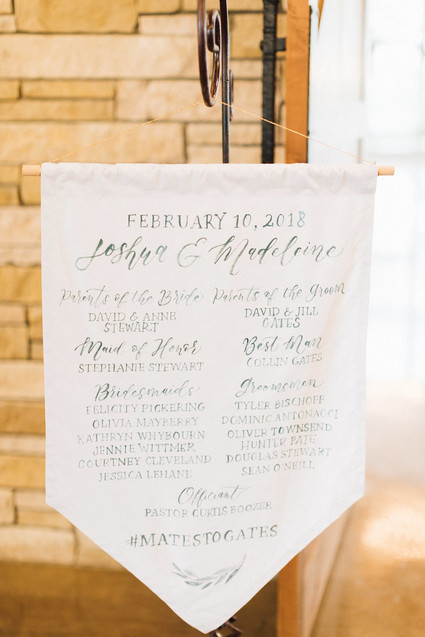 FEBRUARY 10, 2018
Joshua & Madeleine
Parents of the Bride
DAVID & ANNE
STEWART
Parents of the Groom
DAVID & JILL
GATES
Maid of Honor
STEPHANIE STEWART
Best Man
COLLIN GATES
Bridesmaids
FELICITY PICKERING
OLIVIA MAYBERRY
KATHRYN WHYBOURN
JENNIE WITTMER
COURTNEY CLEVELAND
JESSICA LEHANE
Groomsmen
TYLER BISCHOFF
DOMINIC ANTONACCI
OLIVER TOWNSEND
HUNTER PATE
DOUGLAS STEWART
SEAN O'NEILL
Officiant
PASTOR CURTIS BOOZER
#MATESTOGATES